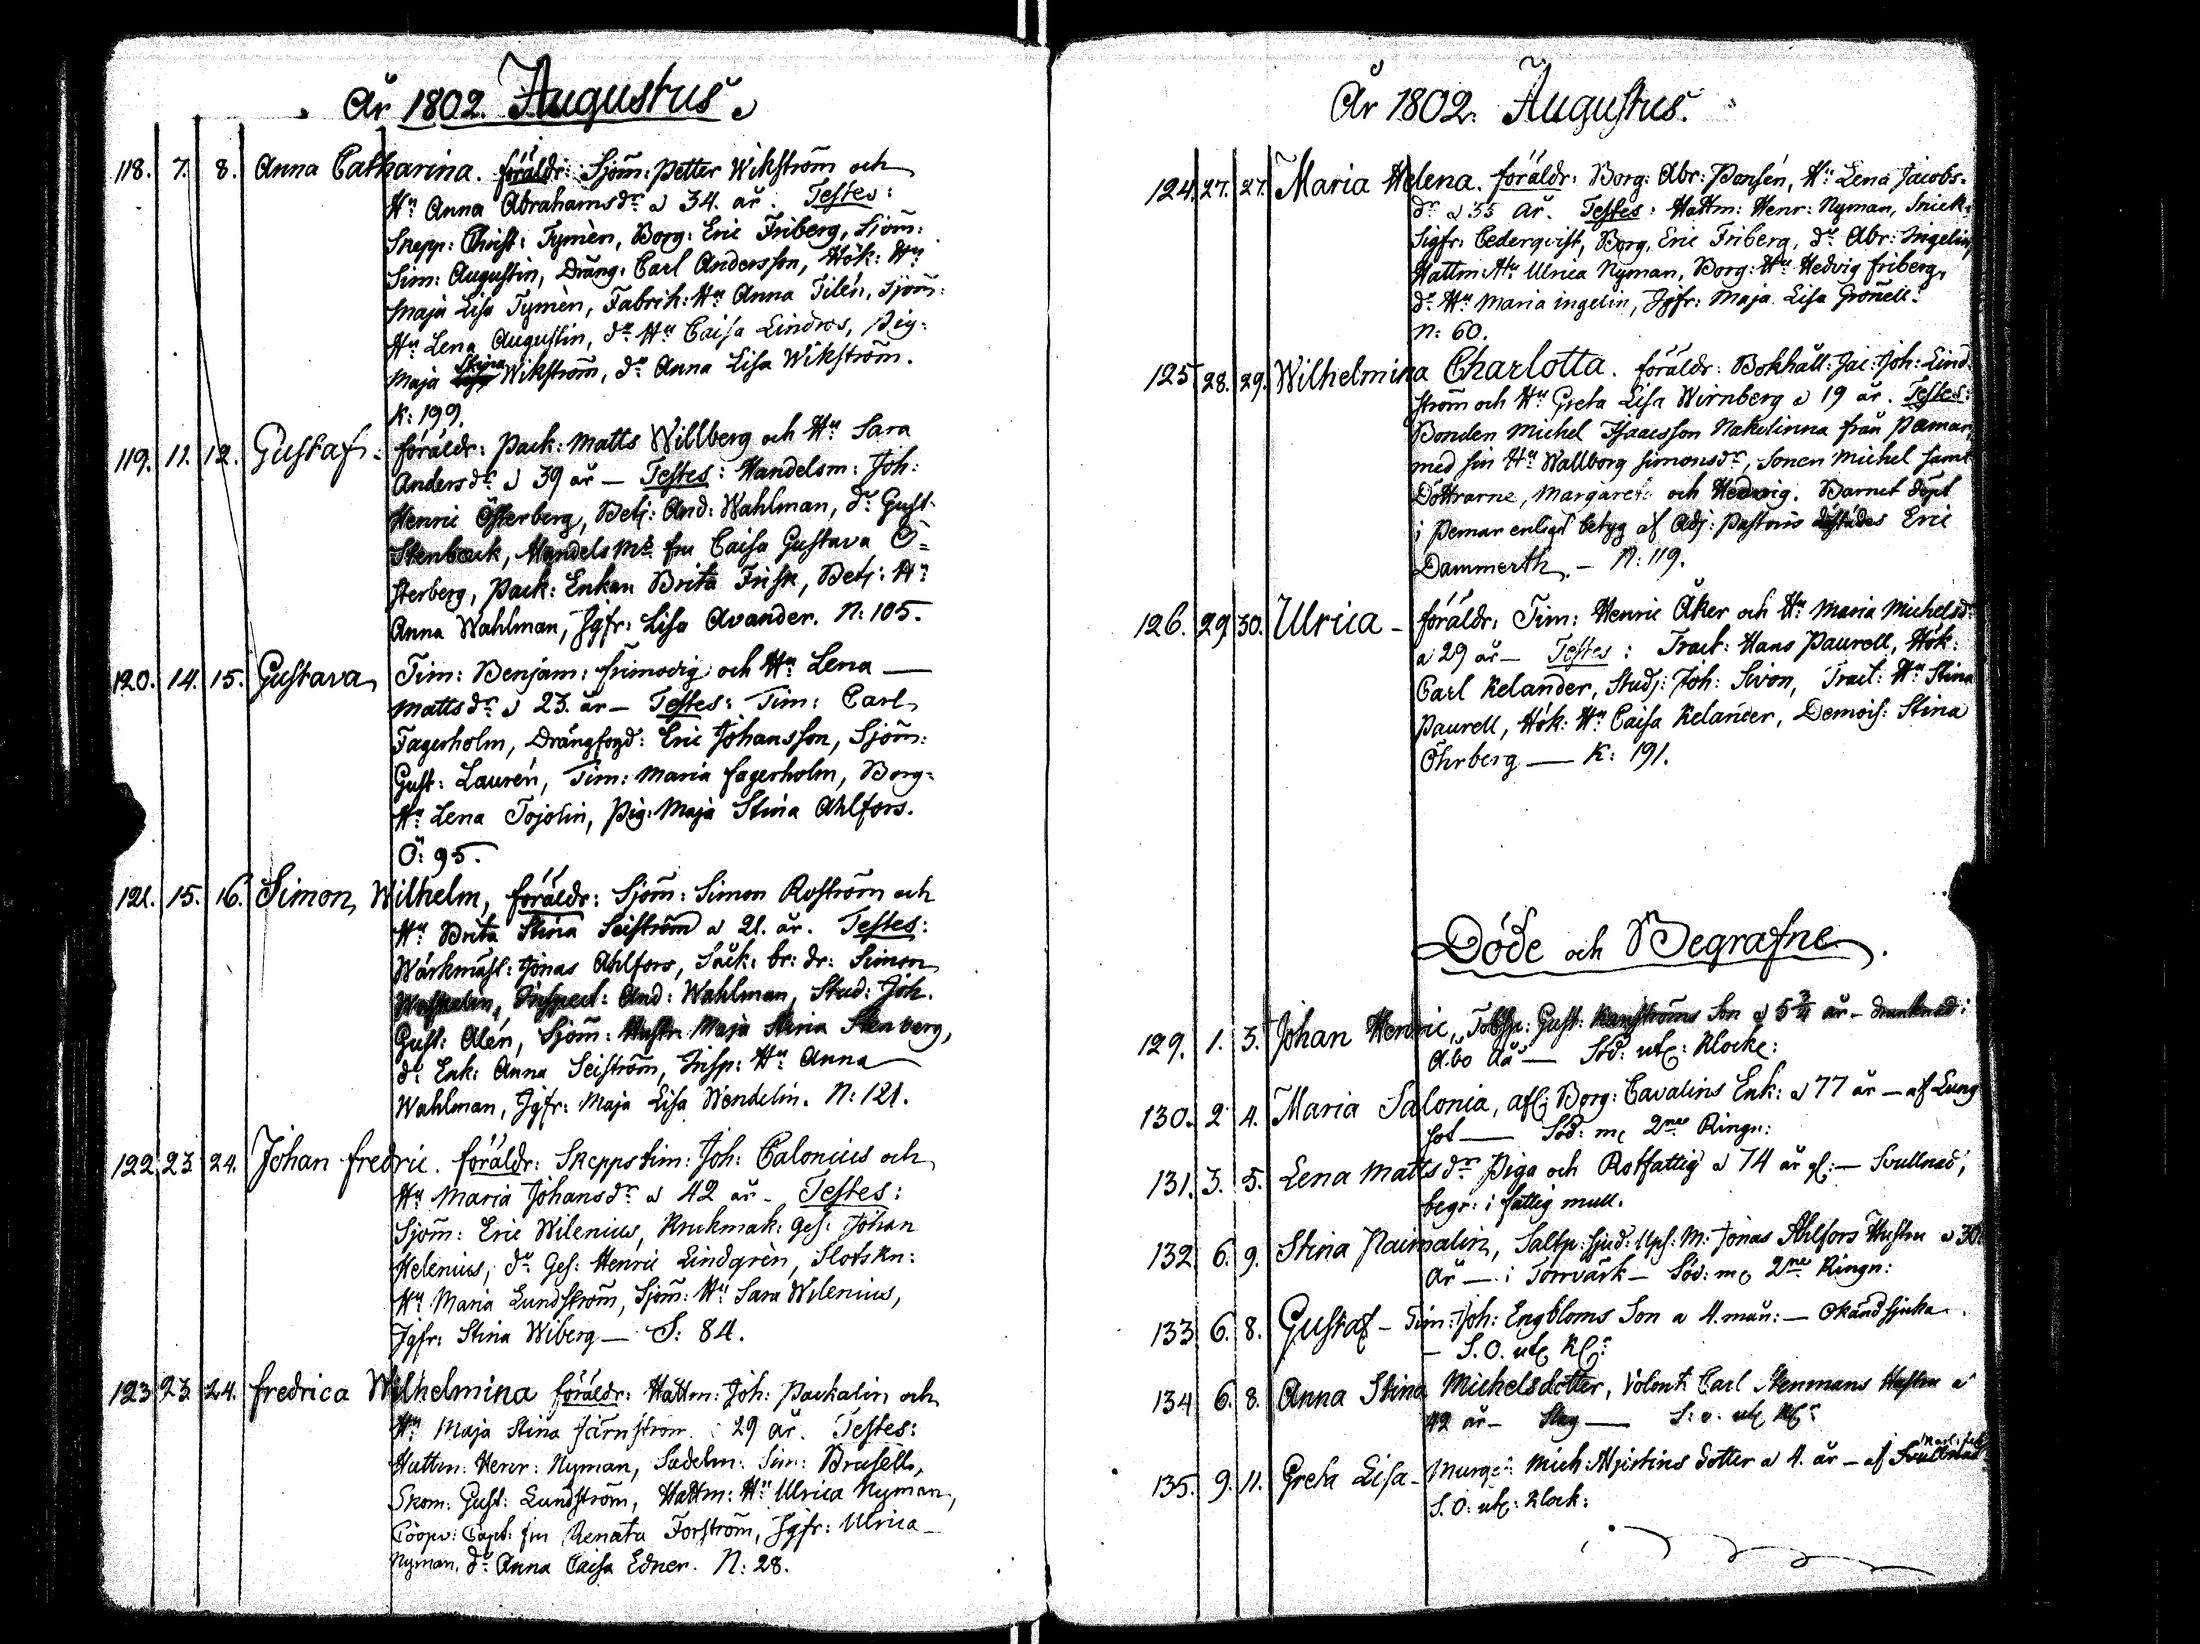 År 1802. Augustus.
118. 7. 8. Anna Catharina. föräldr: Sjöm: Petter Wikström och
Hu Anna Abrahamsdr a 34. år. Testes:
Skepp: Christ: Tymèn, Borg: Eric Friberg, Sjöm:
Sim: Augustin, Dräng: Carl Andersson, Hök: Hu
Maja Lisa Tymèn, Fabrik: Hu Anna Tilén, Sjöm:
Hu Lena Augustin, do Hu Caisa Lindros, Pig:
Maja Stina Wikström, do Anna Lisa Wikström.
K: 199.
119. 11. 12. Gustaf. föräldr: Pack: Matts Willberg och Hu Sara
Andersdr a 39 år — Testes: Handelsm: Joh:
Henric Österberg, Betj: And: Wahlman, do Gust:
Stenbæck, Handelsms fru Caisa Gustava Ö=
sterberg, Pack: Enkan Brita Frisk, Betj: Hu
Anna Wahlman, Jgfr: Lisa Avander. N: 105.
120. 14. 15. Gustava Tim: Benjam: frimodig och Hu Lena —
Mattsdr a 23. år — Testes: Tim: Carl
Fagerholm, Drängfogd: Eric Johansson, Sjöm:
Gust: Laurén, Tim: Maria fagerholm, Borg:
Hu Lena Tojolin, Pig: Maja Stina Ahlfors.
Ö: 95.
121. 15. 16. Simon Wilhelm, föräldr: Sjöm: Simon Roström och
Hu Brita Stina Seiström a 21. år. Testes:
Wärkmäst: Jonas Ahlfors, Såck: br: dr: Simon
Inspect: And: Wahlman, Stud: Joh.
Gust: Alén, Sjöm: Hustr Maja Stina Stenberg,
do Enk: Anna Seiström, Insp: Hu Anna
Wahlman, Jgfr: Maja Lisa Wendelin. N: 121.
122. 23. 24. Johan fredric. föräldr: Skeppstim: Joh: Calonius och
Hu Maria Johansdr a 42 år — Testes:
Sjöm: Eric Wilenius, Krukmak: Ges: Johan
Helenius, do Ges: Henric Lindgrèn, Slotskn:
Hu Maria Lundström, Sjöm: Hu Sara Wilenius,
Jgfr: Stina Wiberg — S: 84.
123. 23. 24. fredrica Wilhelmina föräldr: Hattm: Joh: Packalin och
Hu Maja Stina Järnström 29 år. Testes:
Hattm: Henr: Nyman, Sadelm: Sim: Brusell,
Skom: Gust: Lundström, Hattm: Hu Ulrica Nyman,
Capt: fru Renata Forström, Jgfr: Ulrica
Nyman, do Anna Caisa Edner. N: 28.
År 1802. Augustus.
124. 27. 27. Maria Helena. föräldr: Borg: Abr: Pansén, Hu Lena Jacobs-
dr a 35 år. Testes: Hattm: Henr: Nyman, Snick:
Sigfr: Cederqvist, Borg. Eric Friberg, do Abr: Ingelin,
Hattm: Hu Ulrica Nyman, Borg: Hu Hedvig friberg,
do Hu Maria ingelin, Jgfr: Maja Lisa Grönell.
N: 60.
125. 28. 29. Wilhelmina Charlotta. föräldr: Bokhåll: Jac: Joh: Lind
ström och Hu Greta Lisa Wirnberg a 19 år. Testes:
Bonden Michel Isaacsson Nakolinna från Pemar,
med sin Hu Wallborg Simonsdr, Sonen Michel samt
Döttrarne, Margaret: och Hedwig. Barnet döpt
i Pemar enligt betyg af Adj: Pastoris Eric
Dammerth. — N: 119.
126. 29 30. Ulrica — föräldr: Tim: Henric Åker och Hu Maria Michelsdr
a 29 år — Testes: Tract: Hans Paurell, Hök:
Carl Kelander, Studj: Joh: Sivon, Tract: Hu Stina
Paurell, Hök: Hu Caisa Kelander, Demois: Stina
Öhrberg — K: 191.
Döde och Begrafne.
129. 1. 3. Johan Henric, Tobsp: Gust: Son a 5 3/4 år — drunknad i
Åbo Åå — Söd: utc: Klocke:
130. 2 4. Maria Salonia, afl: Borg: Cavalins Enk: a 77 år — af Lung
sot — Söd: mc 2ne Ringn:
131. 3. 5. Lena Mattsdr Piga och Rotfattig a 74 år gl: — Svullnad,
begr: i fattig mull.
132 6. 9. Stina Paimalin, Saltp: Sjud: Jonas Ahlfors Hustru a 30
år — i Torrvärk — Söd: mc 2ne Ringn:
133 6. 8. Gustaf — Tim: Joh: Engbloms Son a 4. mån: — Okänd sjuka
— S.O. utc Kl:
134 6. 8. Anna Stina Michelsdotter, Volont: Carl Stenmans Hustru a
42 år — Slag — S: o: utc Kl:
135. 9. 11. Greta Lisa — Murge: Mich: Hjertins dotter a 4. år — af
S.O: utc: Klock: